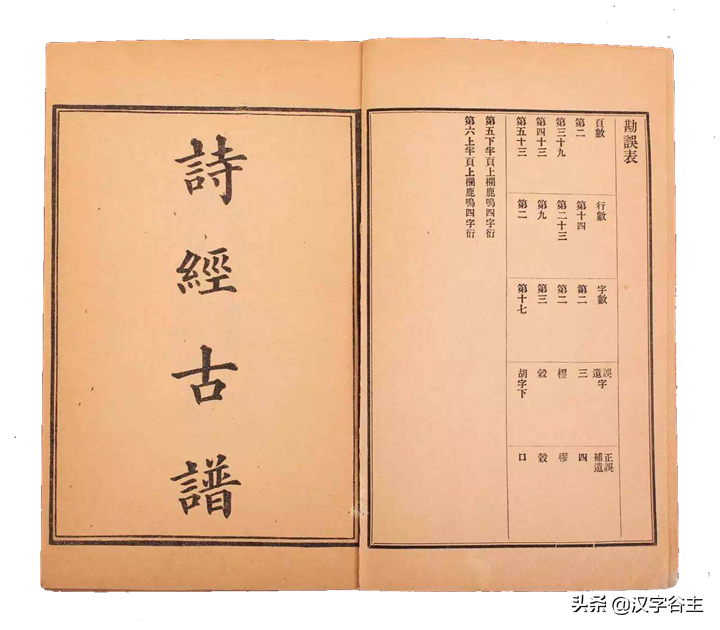 勘誤表
頁數 行數 字數 誤遺字 正誤補遺
第二 第十四 第二 三 四
第三十九 第二十三 第二 樛
第四十三 第九 第三 穀
第五十三 第二 第十七 胡字下 口
第五下半頁上欄鹿鳴四字衍
第六上半頁上欄鹿鳴四字衍
詩經古譜
头条 @汉字谷主